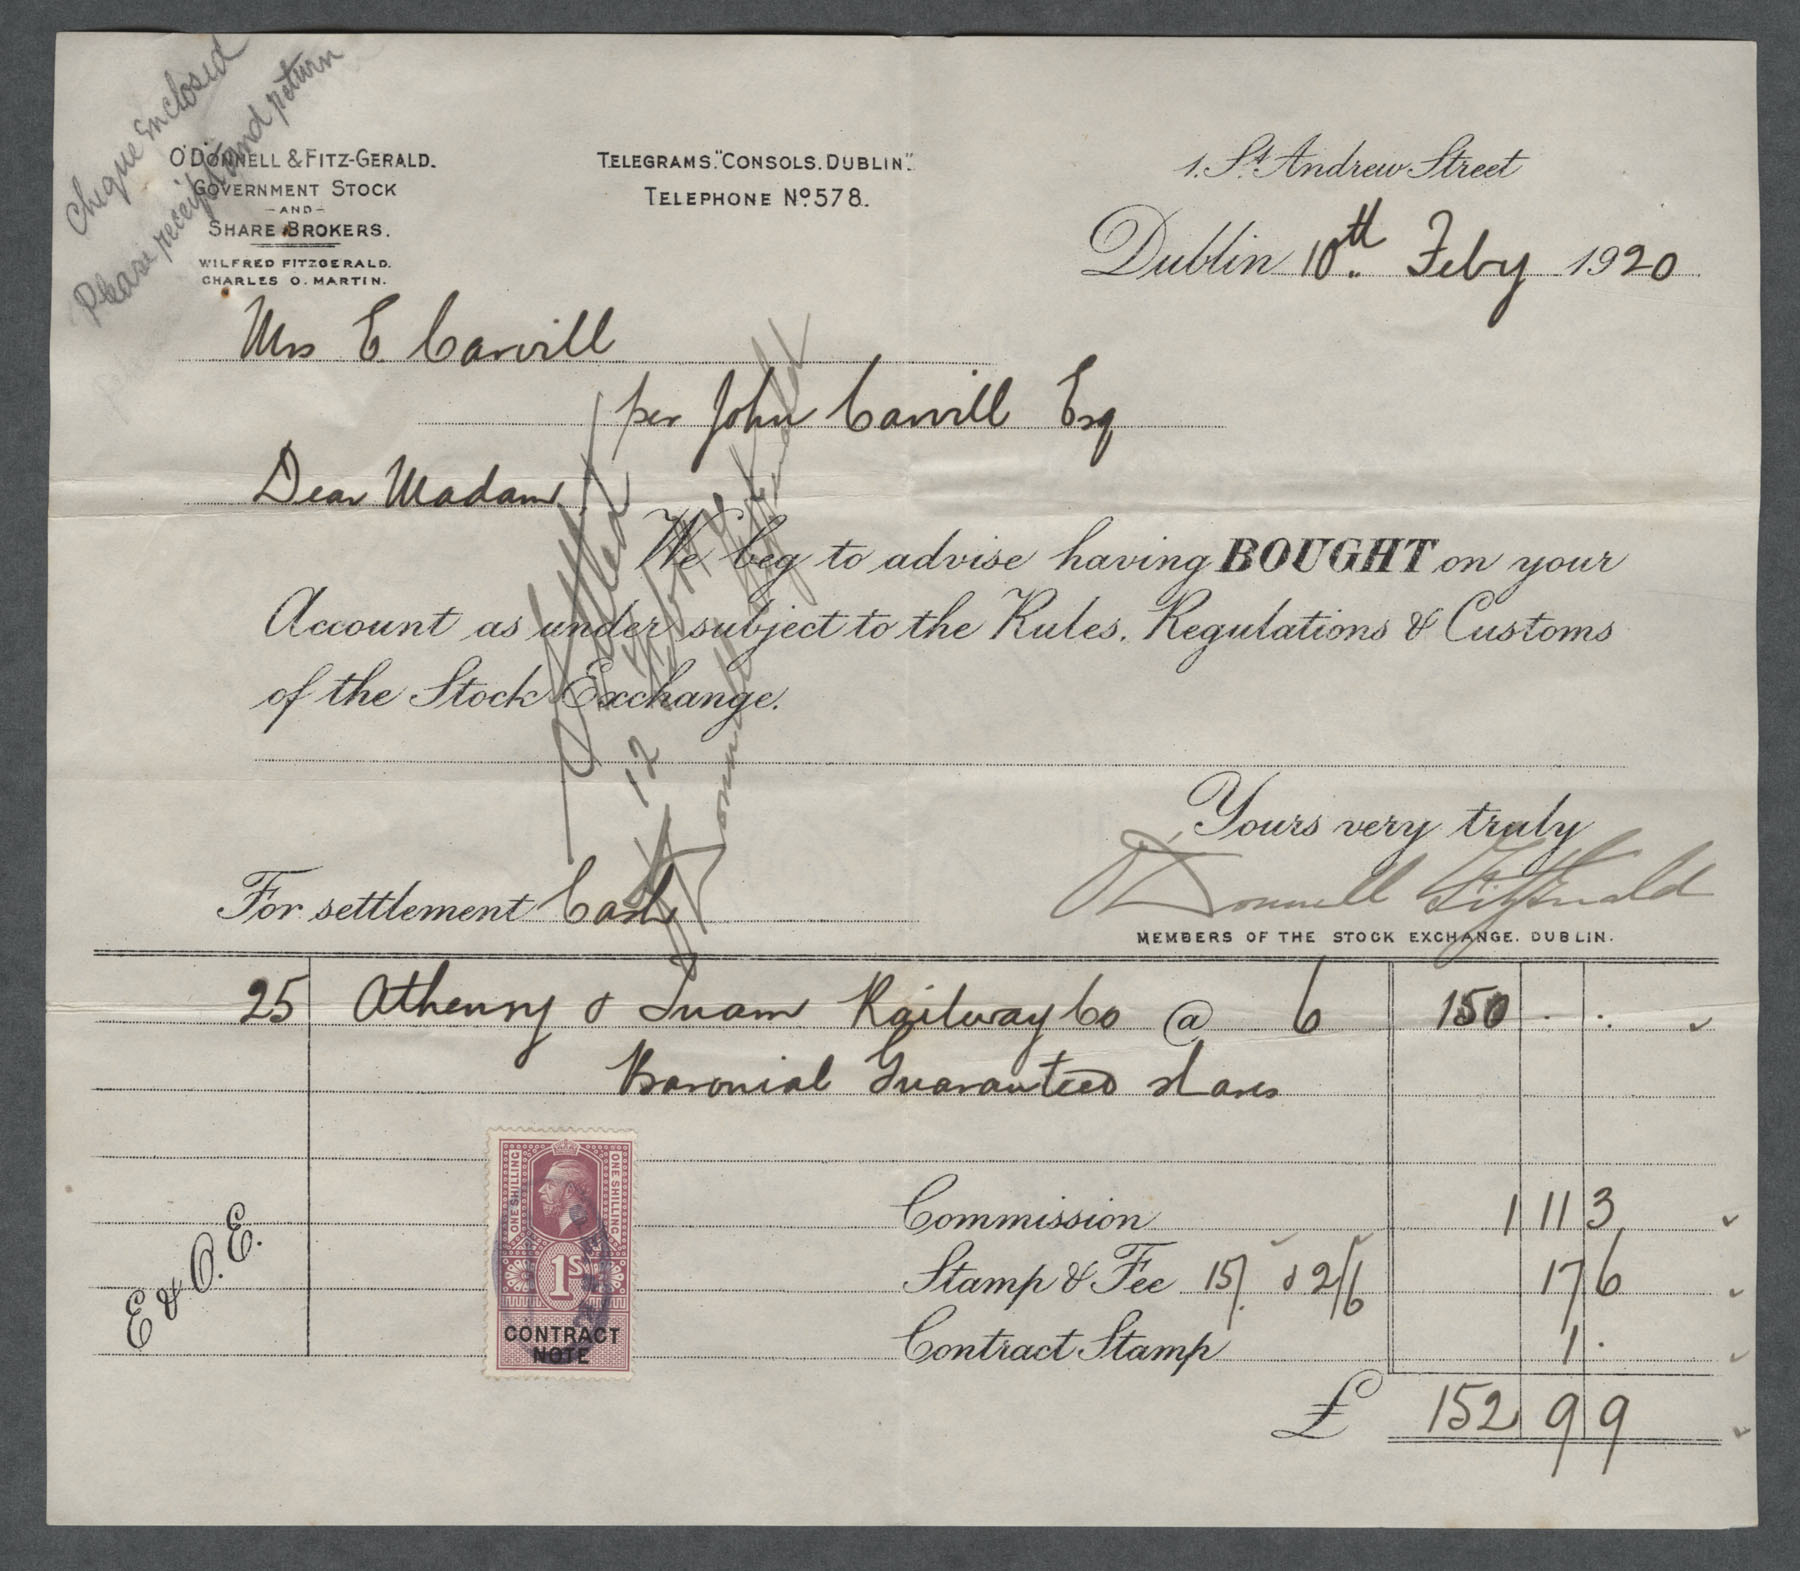 Cheque Enclosed
Please receipt and return
O'DONNELL & FITZ-GERALD.
GOVERNMENT STOCK
- AND -
SHARE BROKERS.
WILFRED FITZGERALD.
CHARLES O. MARTIN.
TELEGRAMS. "CONSOLS. DUBLIN".
TELEPHONE No. 578.
1. St. Andrew Street
Dublin 10th Feby 1920
Mrs E. Carvill
per John Carvill Esq
Dear Madam
We beg to advise having BOUGHT on your
Account as under subject to the Rules, Regulations & Customs
of the Stock Exchange.
Settled
12
O'Donnell Fitzgerald
Yours very truly
O'Donnell Fitzgerald
For settlement Cash
MEMBERS OF THE STOCK EXCHANGE. DUBLIN.
25 Athenry & Tuam Railway Co @ 6 150 . .
Baronial Guaranteed shares
ONE SHILLING
ONE SHILLING
1S
CONTRACT
NOTE
E & O. E.
Commission 1 11 3
Stamp & Fee 15/. & 2/6 17 6
Contract Stamp 1 .
£ 152 9 9